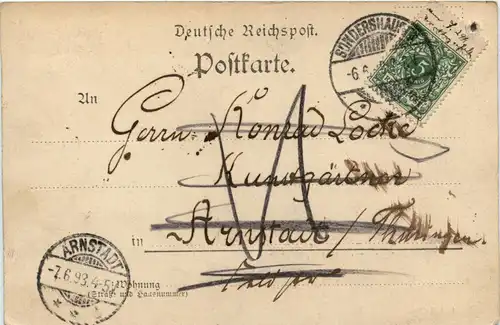 Deutsche Reichspost.
Postkarte.
SONDERSHAUSEN
-6.6
5
An
Herrn Konrad Locke
Kunstgärtner
in Arnstadt / Thüringen
Wohnung
(Straße und Hausnummer)
ARNSTADT
-7.6.93.4-5